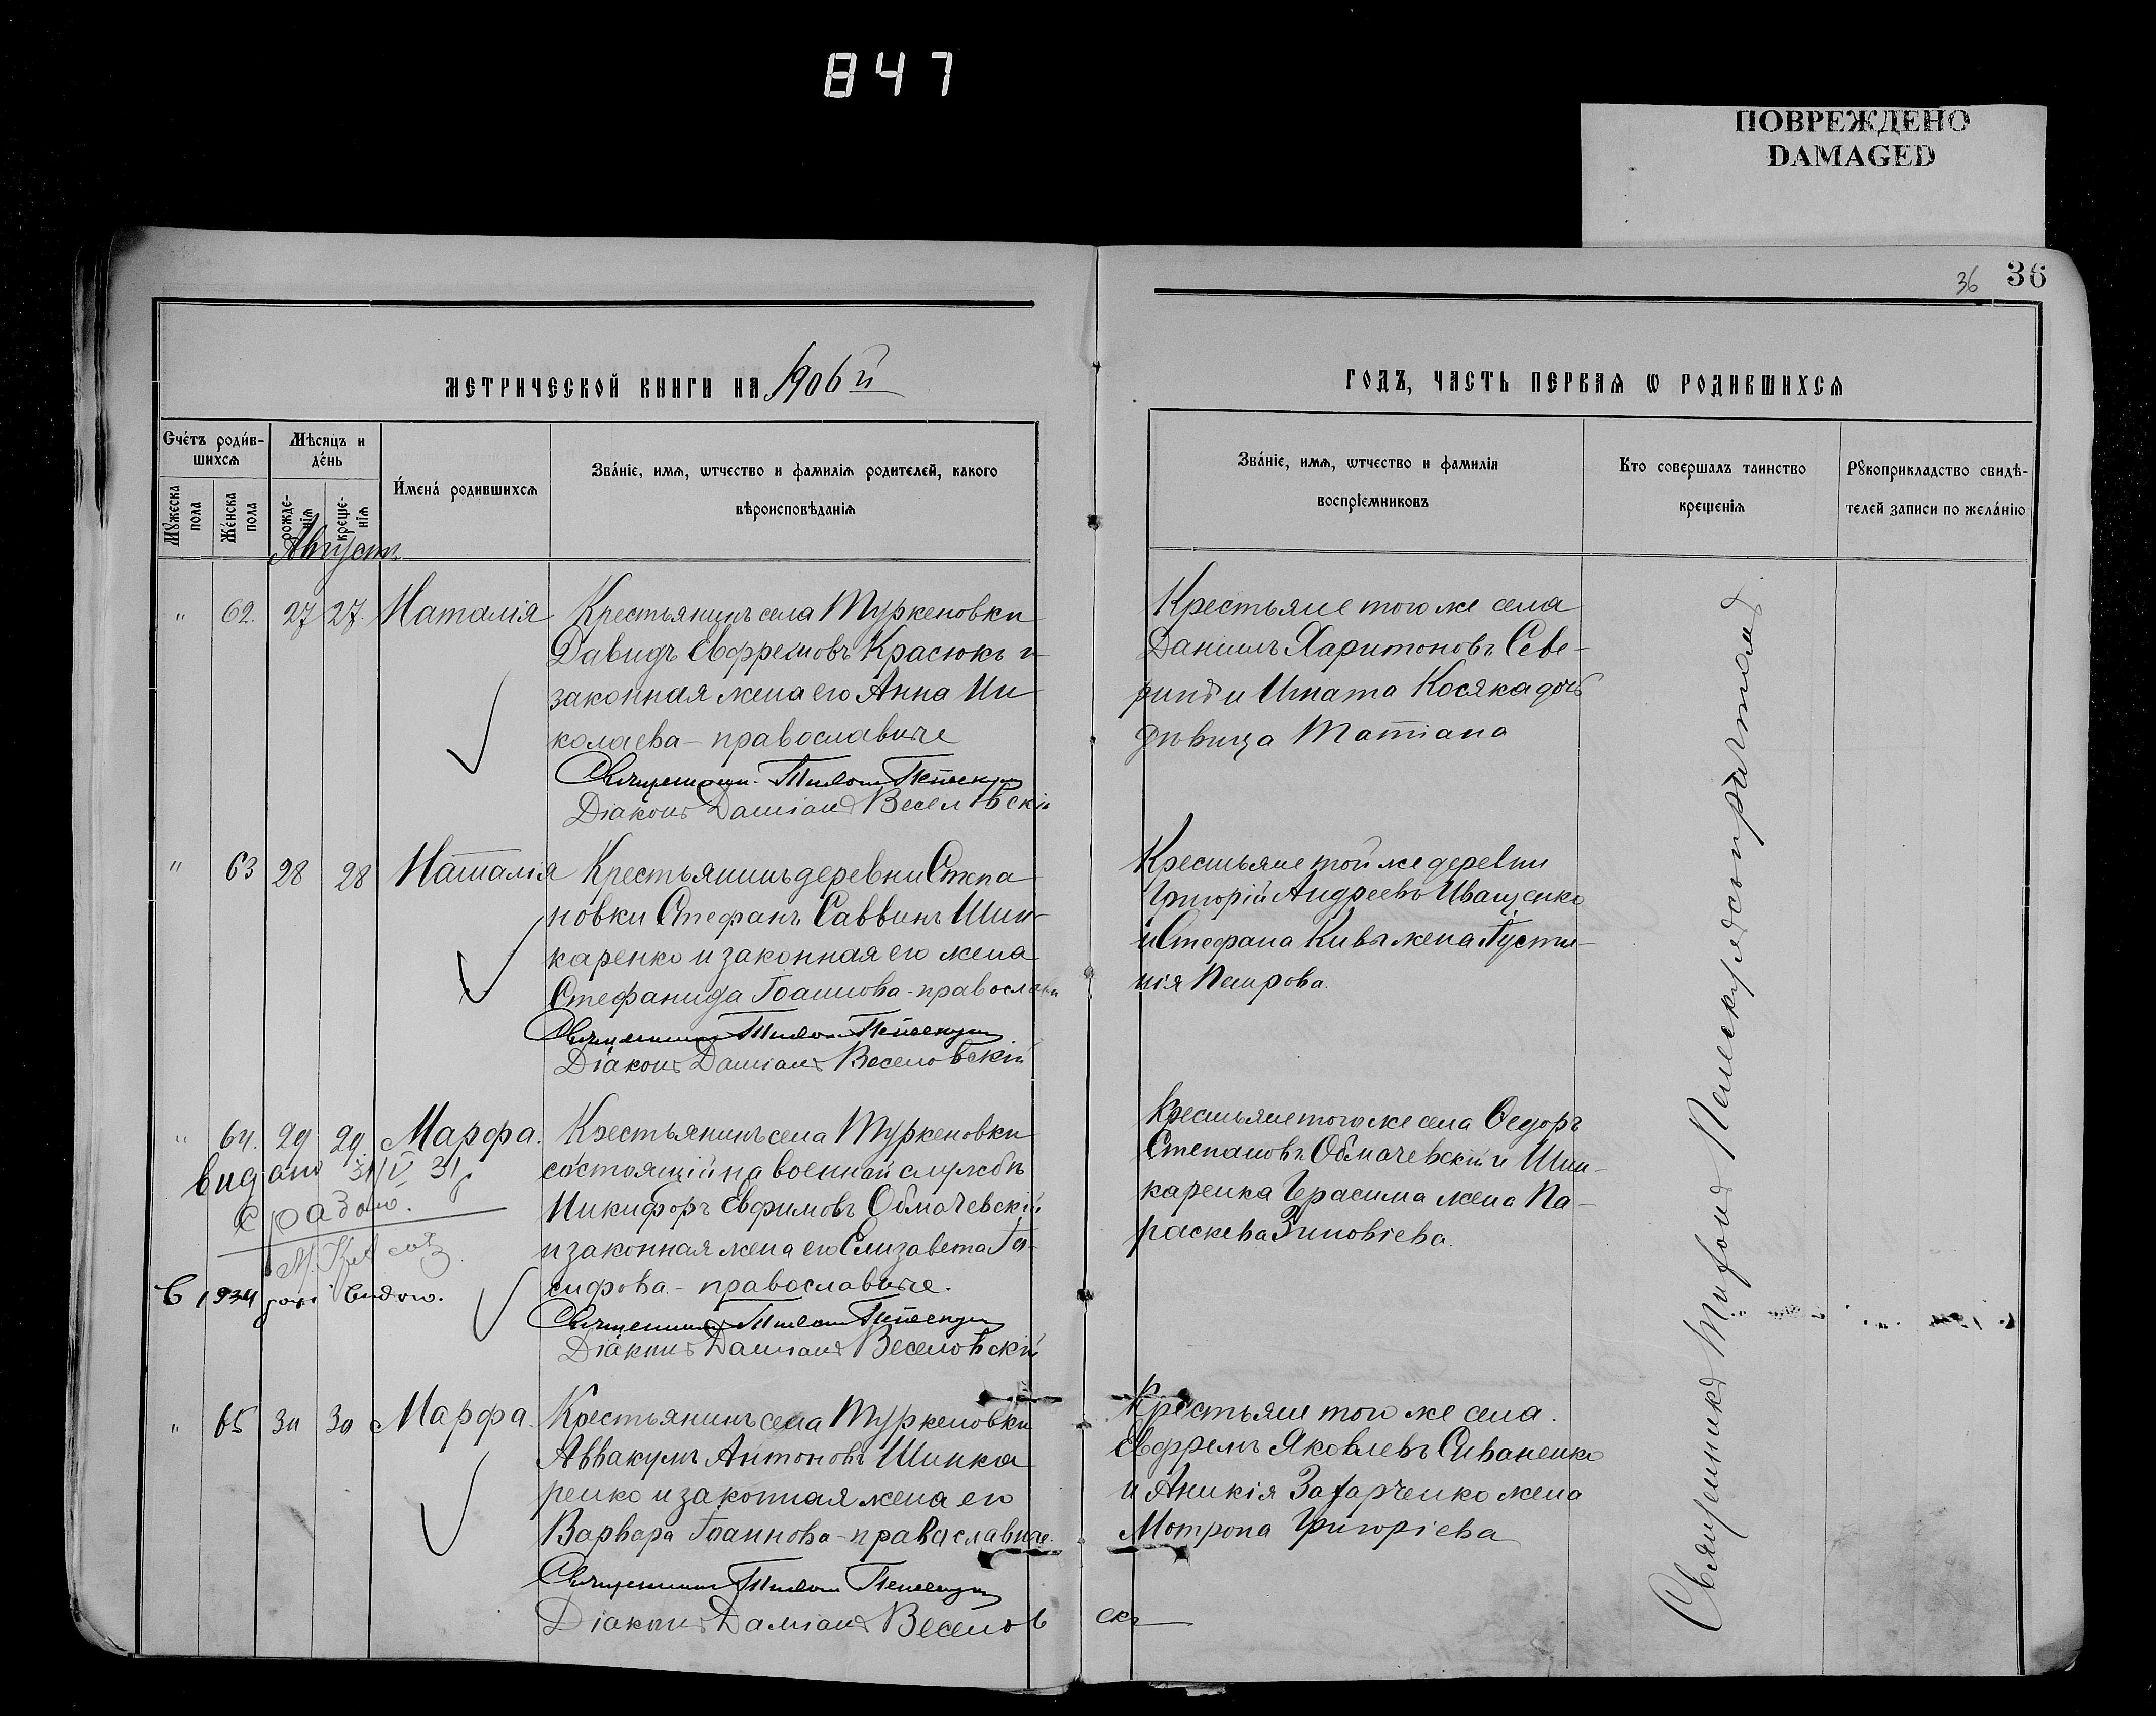 847
ПОВРЕЖДЕНО
DAMAGED
36 36
МЕТРИЧЕСКОЙ КНИГИ НА 1906 й
ГОДЪ, ЧАСТЬ ПЕРВАЯ Ѡ РОДИВШИХСЯ
Счéтъ родив-
шихся
Мꙋжеска пола
Жéнска пола
Мѣсяцъ и
дéнь
рожде-
нія
креще-
нія
Августъ
И́мена́ родившихся
Зва́ніе, имя, ѡтчество и фамилія родителей, какого
вѣроисповѣданія
Зва́ніе, имя, ѡтчество и фамилія
воспріемниковъ
Кто совершалъ таинство
крещенія
Рꙋкоприкладство свидѣ-
телей записи по жела́нію
" 62. 27 27. Наталія
Крестьянинъ села Туркеновки
Давидъ Евфремовъ Красюкъ и
законная жена его Анна Ни
колаева - православные
Священникъ Тихонъ
Діаконъ Даміанъ Веселовскій
Крестьяне того же села
Даніилъ Харитоновъ Севе-
ринъ и Игната Косяка дочь
дѣвица Татіана
" 63 28 28 Наталія
Крестьянинъ деревни Степа
новки Стефанъ Саввинъ Шин-
каренко и законная его жена
Стефанида Іоаннова - православн
Священникъ Тихонъ
Діаконъ Даміанъ Веселовскій
Крестьяне той же деревни
Григорій Андреевъ Иващенко
и Стефана Кивы жена Іусти-
нія Петрова.
" 64. 29 29. Марфа.
Крестьянинъ села Туркеновки
состоящій на военной службѣ
Никифоръ Евфимовъ Обмачевскій
и законная жена его Елизавета Іо-
сифова. - православные.
Священникъ Тихонъ
Діаконъ Даміанъ Веселовскій
Видано 31/V 31
В 1934
Крестьяне того же села Ѳедоръ
Степановъ Обмачевскій и Шин-
каренка Герасима жена Па-
раскева Зиновіева.
" 65 30 30 Марфа.
Крестьянинъ села Туркеновки
Аввакумъ Антоновъ Шинка
ренко и законная жена его
Варвара Іоаннова - православные.
Священникъ Тихонъ
Діаконъ Даміанъ Веселовскъ
Крестьяне того же села.
Евфремъ Яковлевъ Сиваненко
и Аникія Захарченко жена
Мотрона Григоріева
Священникъ Тихонъ